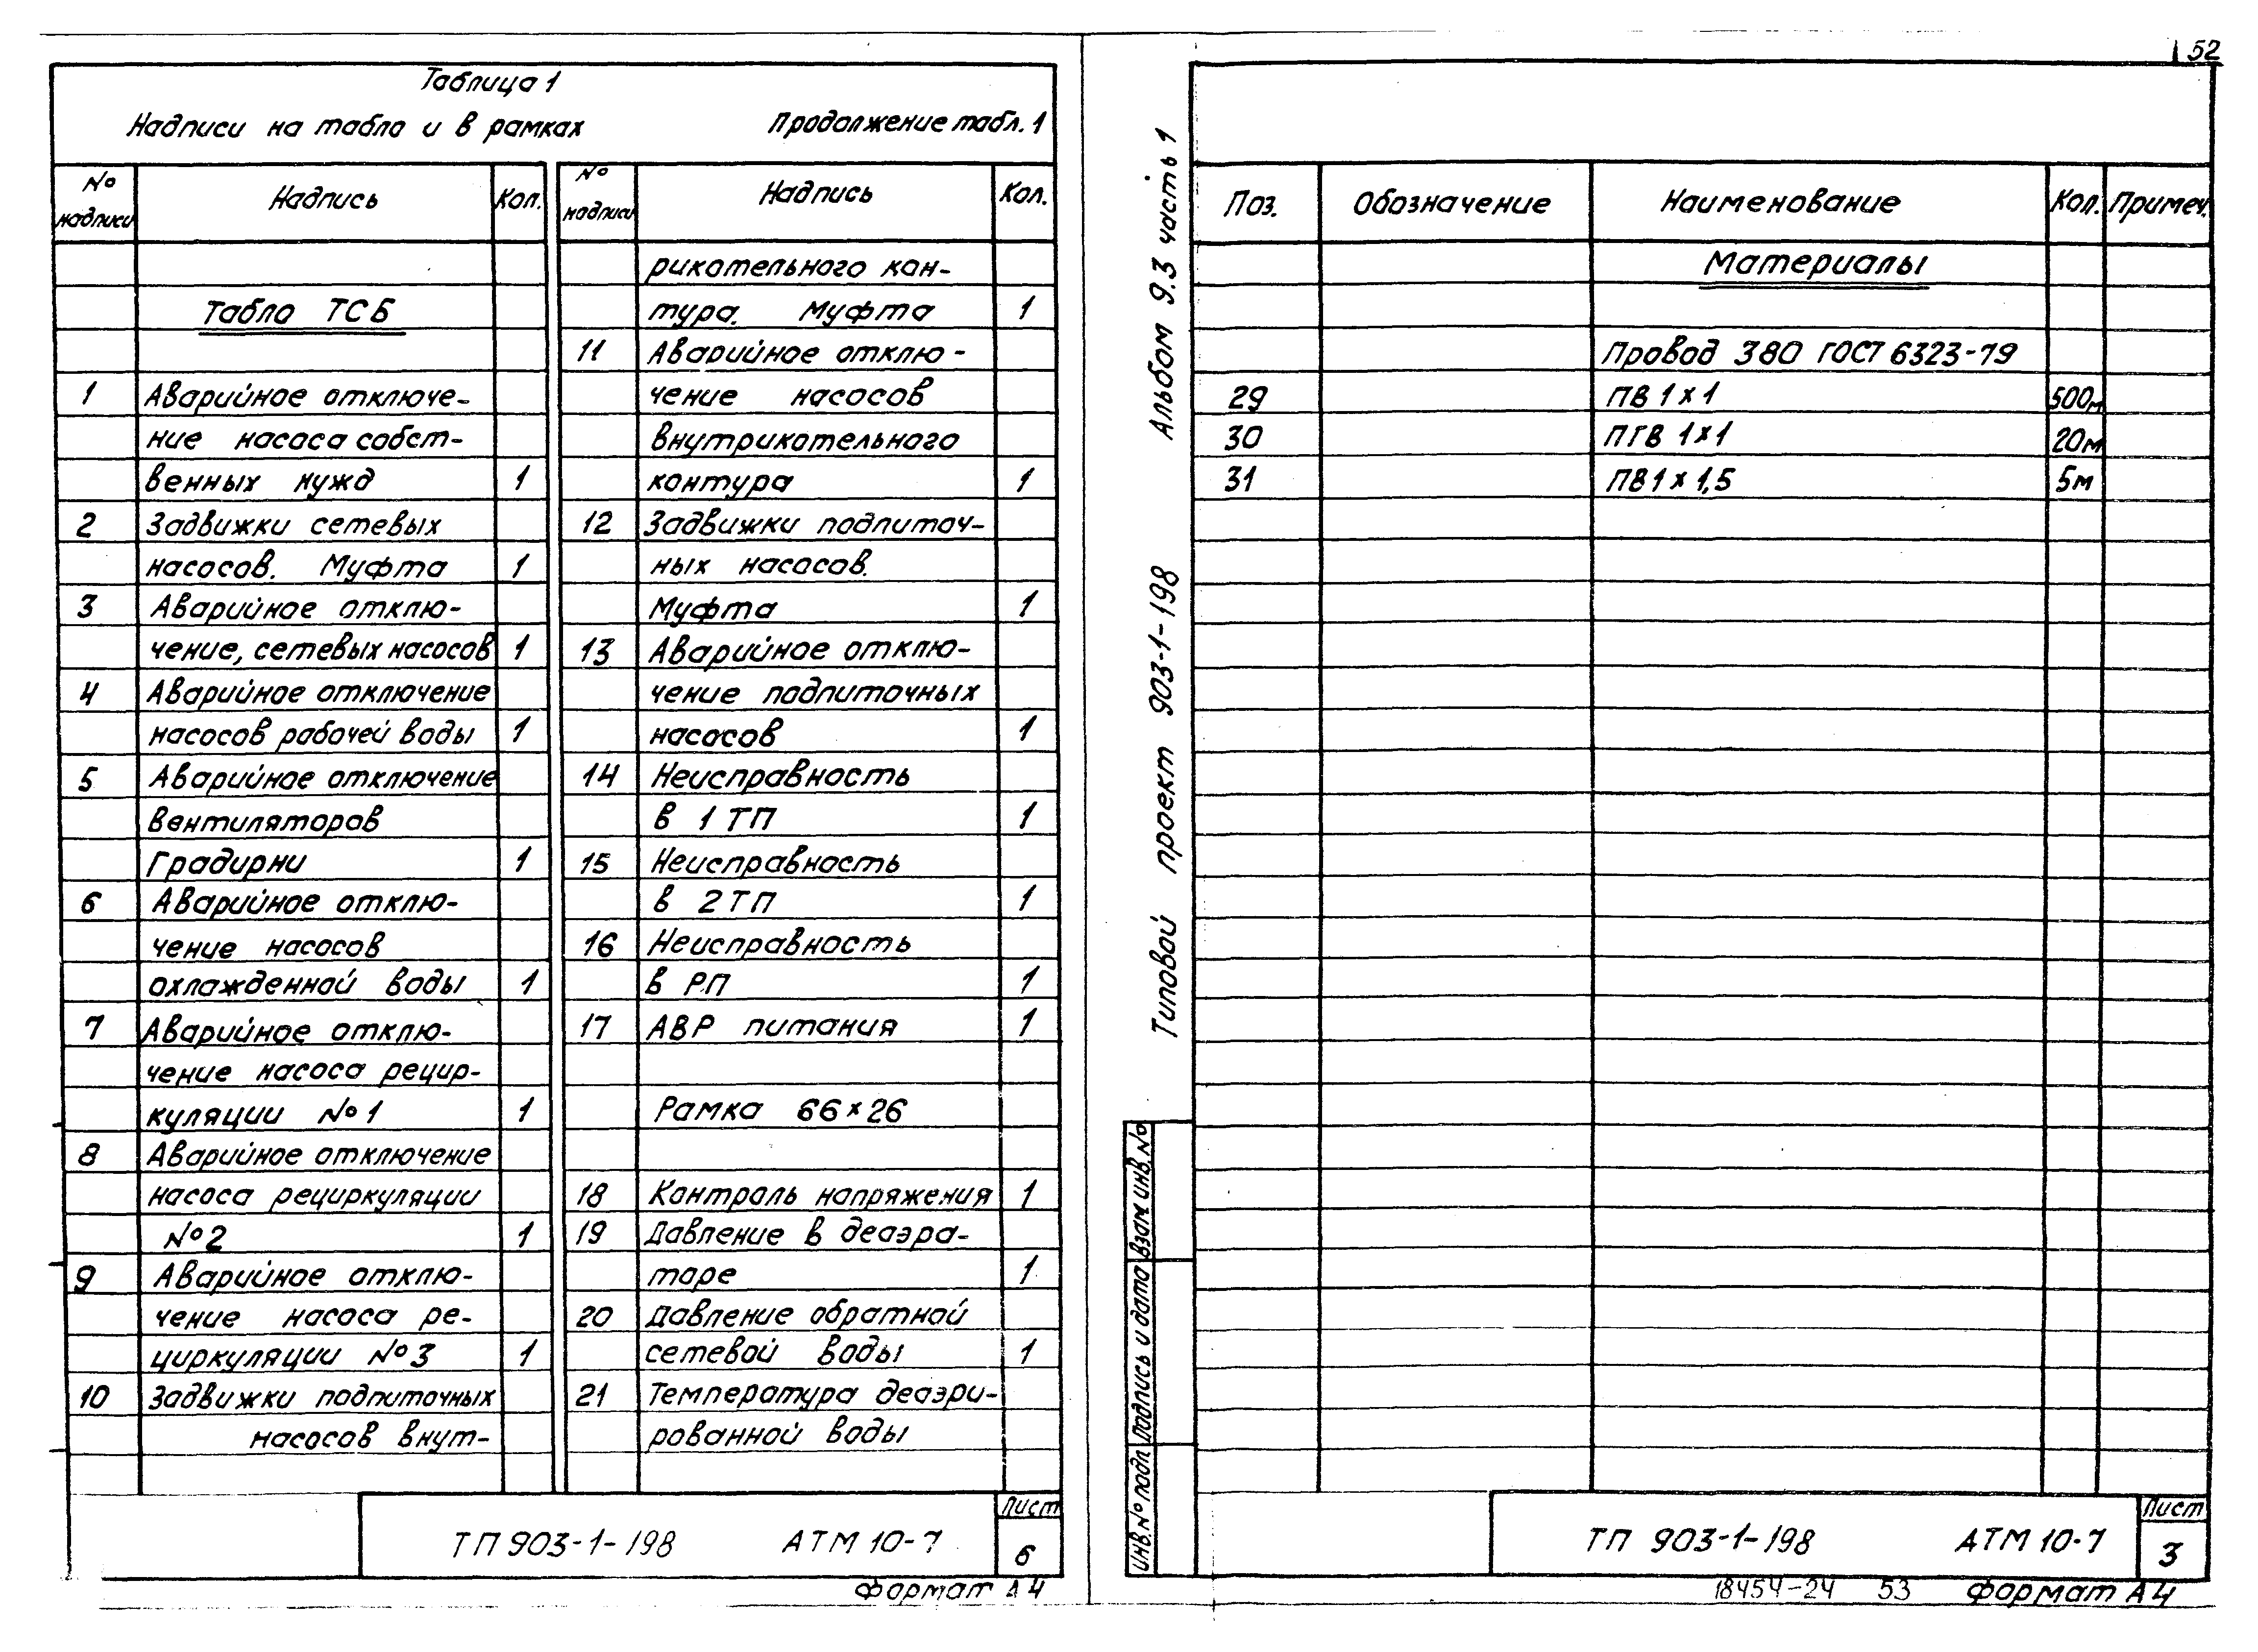 52
Таблица 1
Надписи на табло и в рамках
№ надписи Надпись Кол.
Табло ТСБ
1 Аварийное отключе-
ние насоса собст-
венных нужд 1
2 Задвижки сетевых
насосов. Муфта 1
3 Аварийное отклю-
чение, сетевых насосов 1
4 Аварийное отключение
насосов рабочей воды 1
5 Аварийное отключение
вентиляторов
Градирни 1
6 Аварийное отклю-
чение насосов
охлажденной воды 1
7 Аварийное отклю-
чение насоса рецир-
куляции №1 1
8 Аварийное отключение
насоса рециркуляции
№2 1
9 Аварийное отклю-
чение насоса ре-
циркуляции №3 1
10 Задвижки подпиточных
насосов внут-
Продолжение табл. 1
№ надписи Надпись Кол.
рикотельного кон-
тура. Муфта 1
11 Аварийное отклю-
чение насосов
внутрикотельного
контура 1
12 Задвижки подпиточ-
ных насосов.
Муфта 1
13 Аварийное отклю-
чение подпиточных
насосов 1
14 Неисправность
в 1 ТП 1
15 Неисправность
в 2 ТП 1
16 Неисправность
в РП 1
17 АВР питания 1
Рамка 66×26
18 Контроль напряжения 1
19 Давление в деаэра-
торе 1
20 Давление обратной
сетевой воды 1
21 Температура деаэри-
рованной воды
ТП 903-1-198 АТМ 10-7
Лист
6
Формат А4
Типовой проект 903-1-198 Альбом 9.3 часть 1
Поз. Обозначение Наименование Кол. Примеч.
Материалы
Провод 380 ГОСТ 6323-79
29 ПВ 1×1 500м
30 ПГВ 1×1 20м
31 ПВ 1×1,5 5м
Инв. № подл. Подпись и дата Взам. инв. №
ТП 903-1-198 АТМ 10-7
Лист
3
18454-24 53 Формат А4